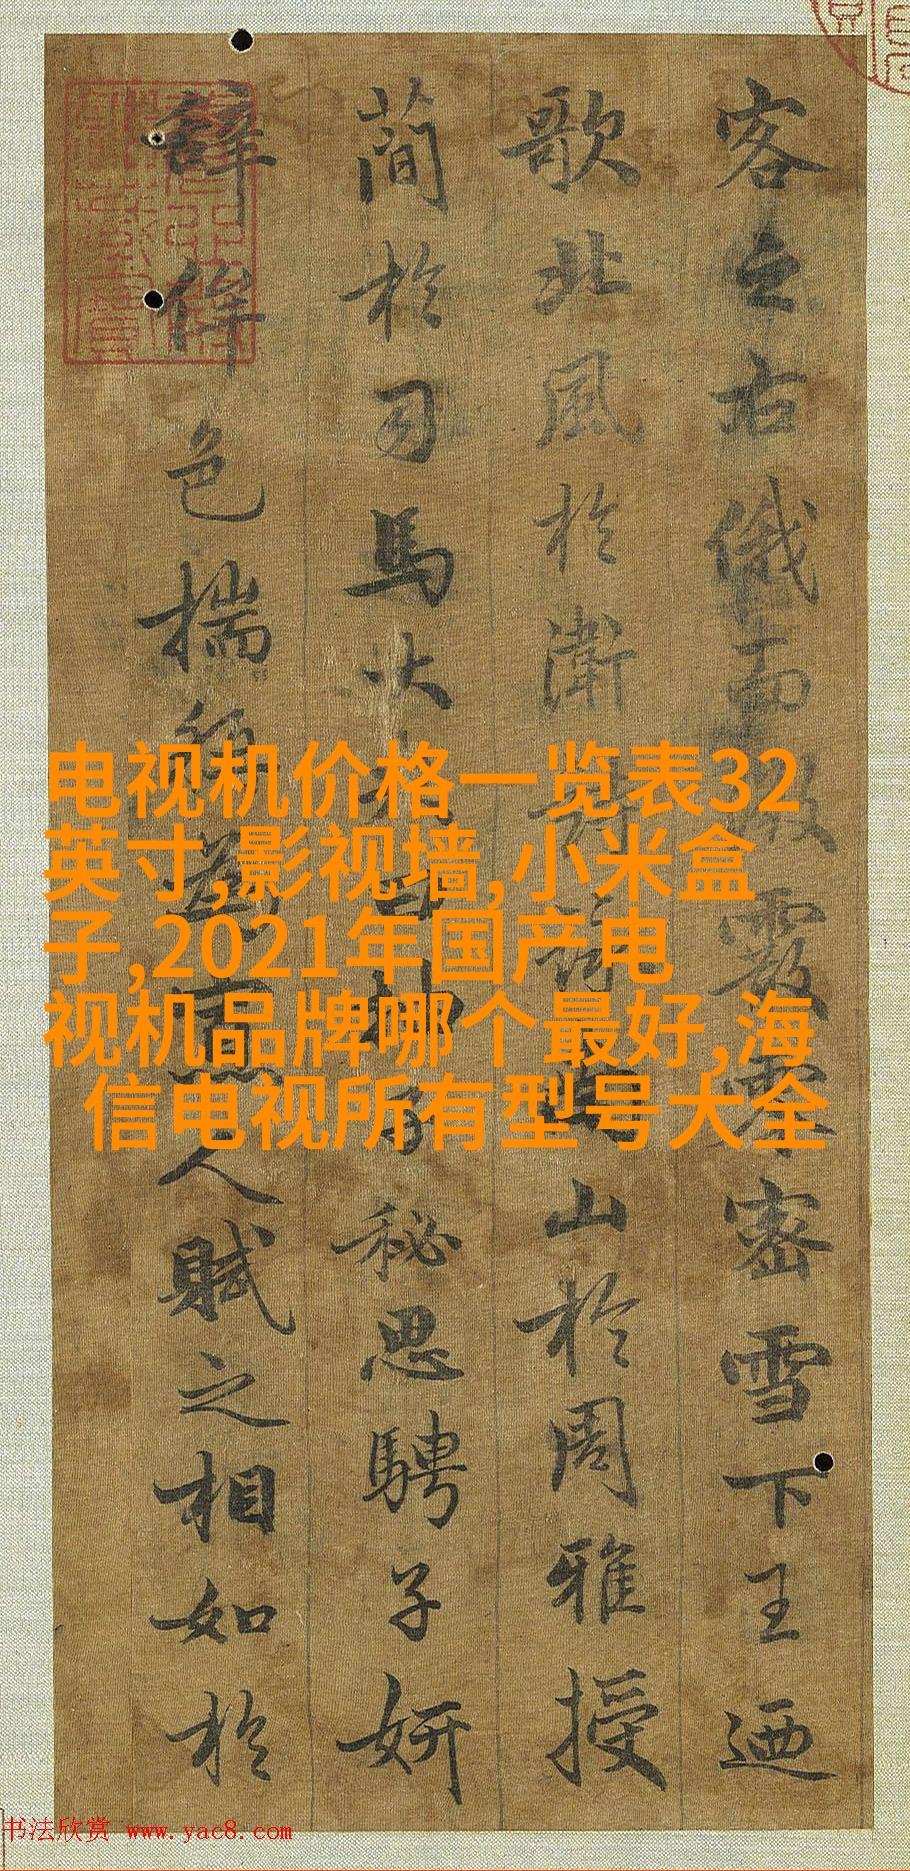 客之右俄而微霰零密雪下王迺
歌北風於衛詩詠山於周雅授
簡於司馬大曰抽子秘思騁子妍
辭侔色揣稱為寡人賦之相如於
电视机价格一览表32
英寸,影视墙,小米盒
子,2021年国产电
视机品牌哪个最好,海
信电视所有型号大全
书法欣赏 www.yac8.com